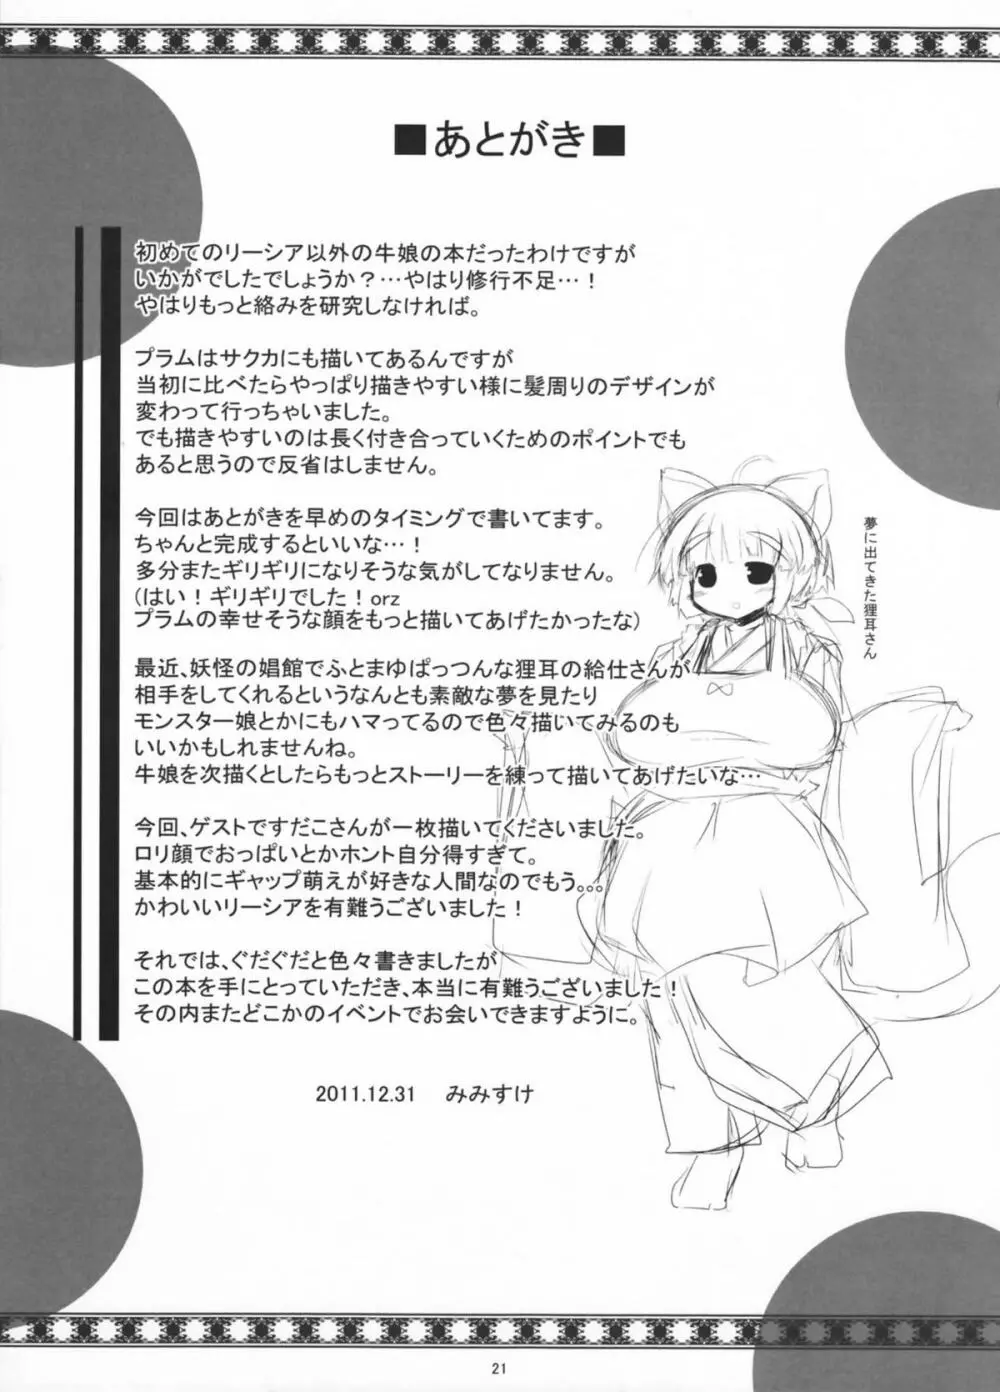 ■あとがき■
初めてのリーシア以外の牛娘の本だったわけですが
いかがでしたでしょうか？…やはり修行不足…！
やはりもっと絡みを研究しなければ。
プラムはサクカにも描いてあるんですが
当初に比べたらやっぱり描きやすい様に髪周りのデザインが
変わって行っちゃいました。
でも描きやすいのは長く付き合っていくためのポイントでも
あると思うので反省はしません。
今回はあとがきを早めのタイミングで書いてます。
ちゃんと完成するといいな…！
多分またギリギリになりそうな気がしてなりません。
(はい！ギリギリでした！orz
プラムの幸せそうな顔をもっと描いてあげたかったな)
最近、妖怪の娼館でふとまゆぱっつんな狸耳の給仕さんが
相手をしてくれるというなんとも素敵な夢を見たり
モンスター娘とかにもハマってるので色々描いてみるのも
いいかもしれませんね。
牛娘を次描くとしたらもっとストーリーを練って描いてあげたいな…
今回、ゲストですだこさんが一枚描いてくださいました。
ロリ顔でおっぱいとかホント自分得すぎて。
基本的にギャップ萌えが好きな人間なのでもう。。。
かわいいリーシアを有難うございました！
それでは、ぐだぐだと色々書きましたが
この本を手にとっていただき、本当に有難うございました！
その内またどこかのイベントでお会いできますように。
2011.12.31 みみすけ
夢に出てきた狸耳さん
21